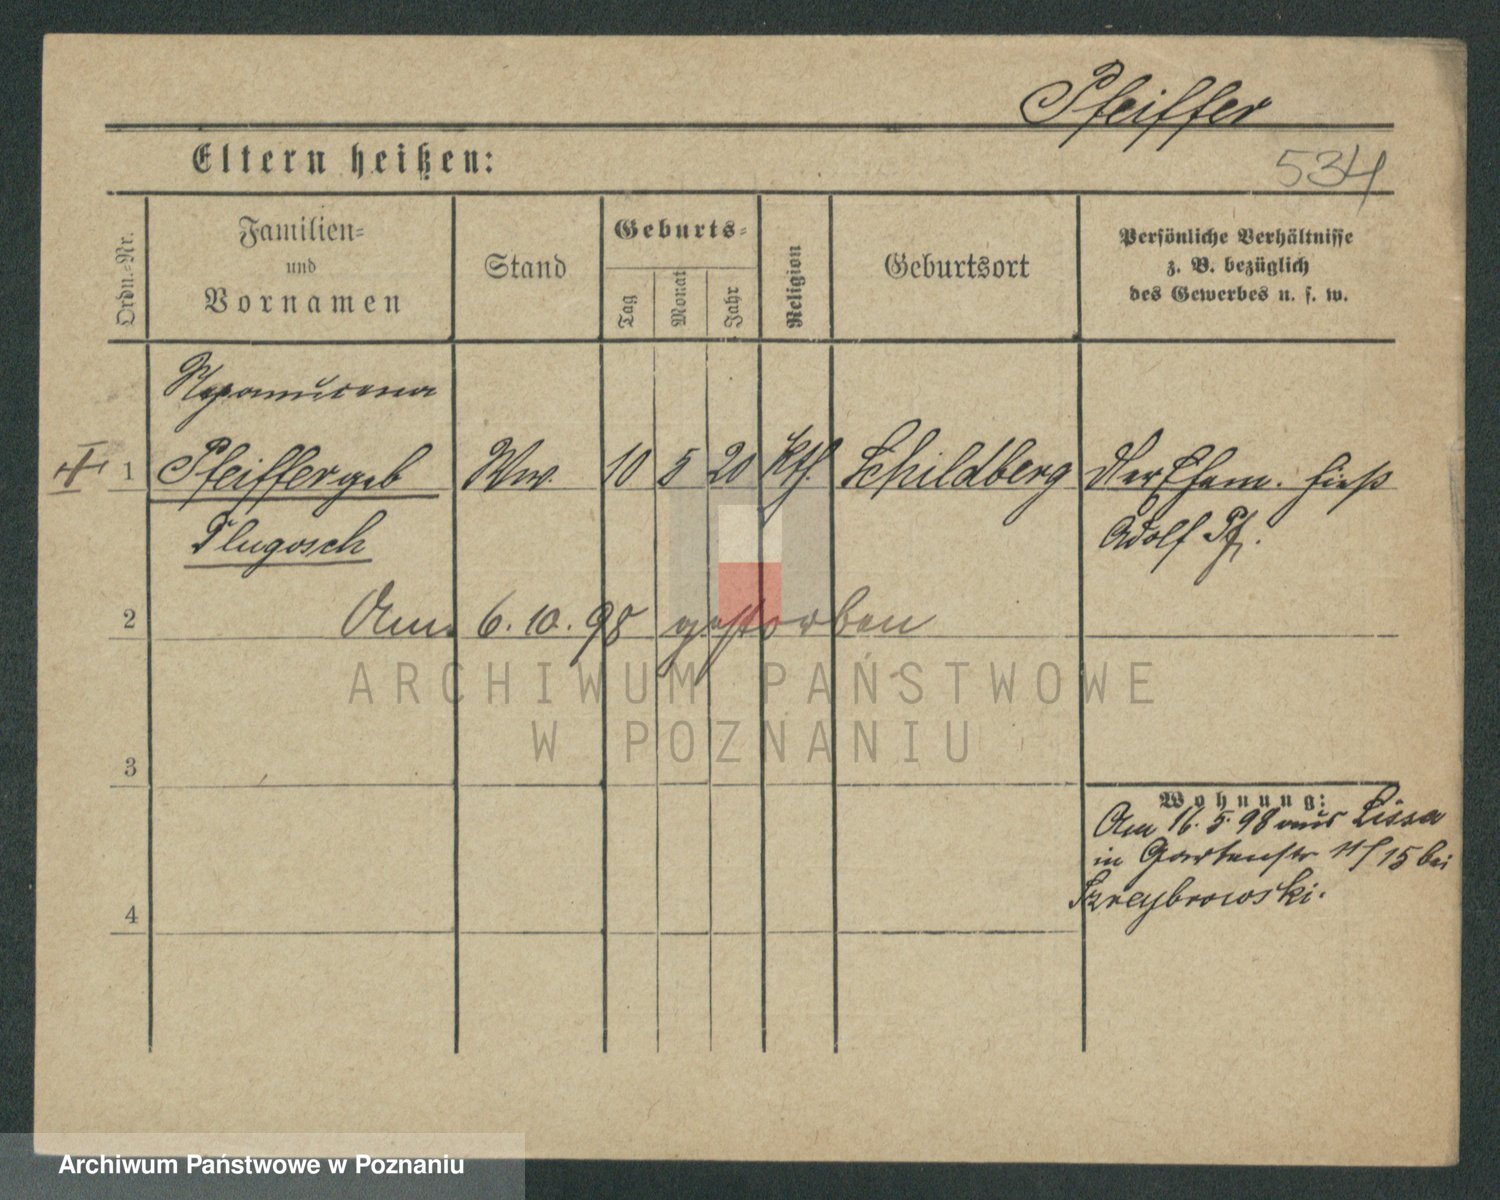 Pfeiffer
Eltern heißen:
534
Ordn.=Nr.
Familien=
und
Vornamen
Stand
Geburts=
Tag
Monat
Jahr
Religion
Geburtsort
Persönliche Verhältnisse
z. B. bezüglich
des Gewerbes u. s. w.
Nepomucena
1 Pfeiffer geb Ww. 10 5 20 Kth. Schildberg Der Ehem. hieß
Dlugosch Adolf Pf.
2 Am 6. 10. 98 gestorben
ARCHIWUM PAŃSTWOWE
W POZNANIU
3
Wohnung:
Am 16. 5. 98 aus Lissa
in Gartenstr 11/15 bei
4
Archiwum Państwowe w Poznaniu